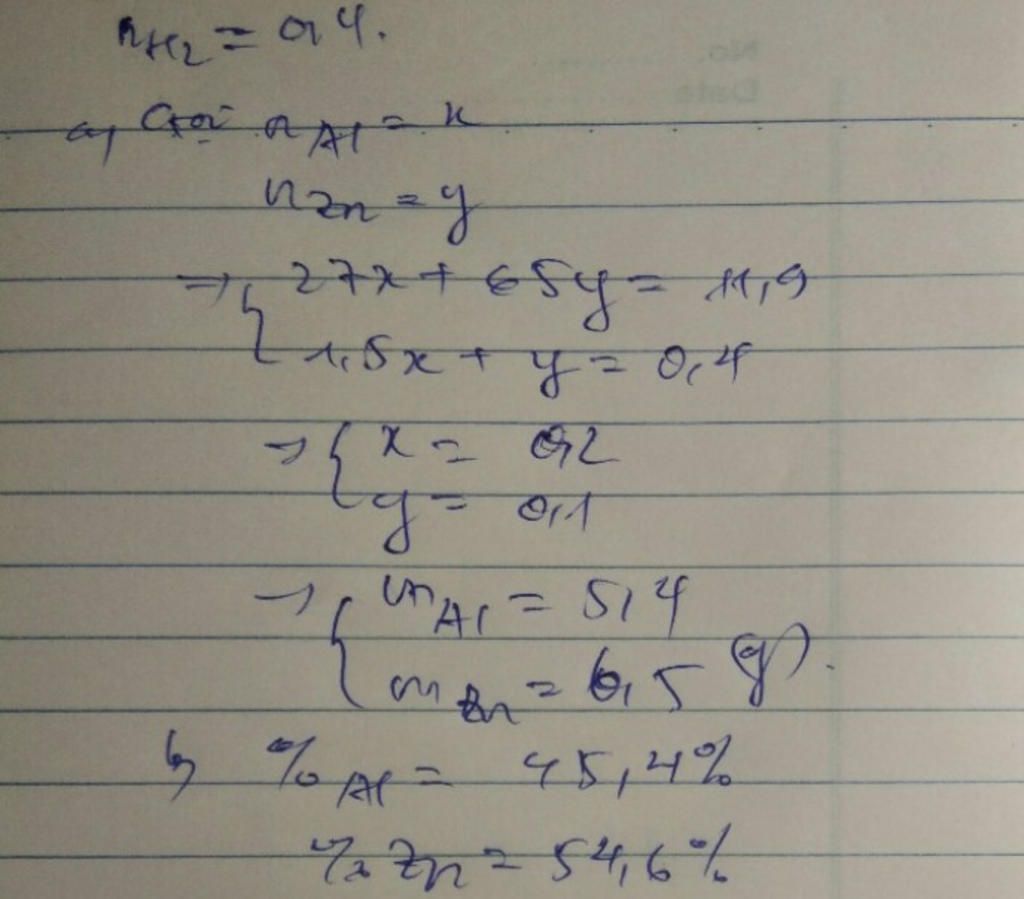 nH2 = 0,4.
a, Gọi nAl = x
nZn = y
→ { 27x + 65y = 11,9
1,5x + y = 0,4
→ { x = 0,2
y = 0,1
→ { mAl = 5,4
mZn = 6,5 (g).
b, % Al = 45,4%
% Zn = 54,6%